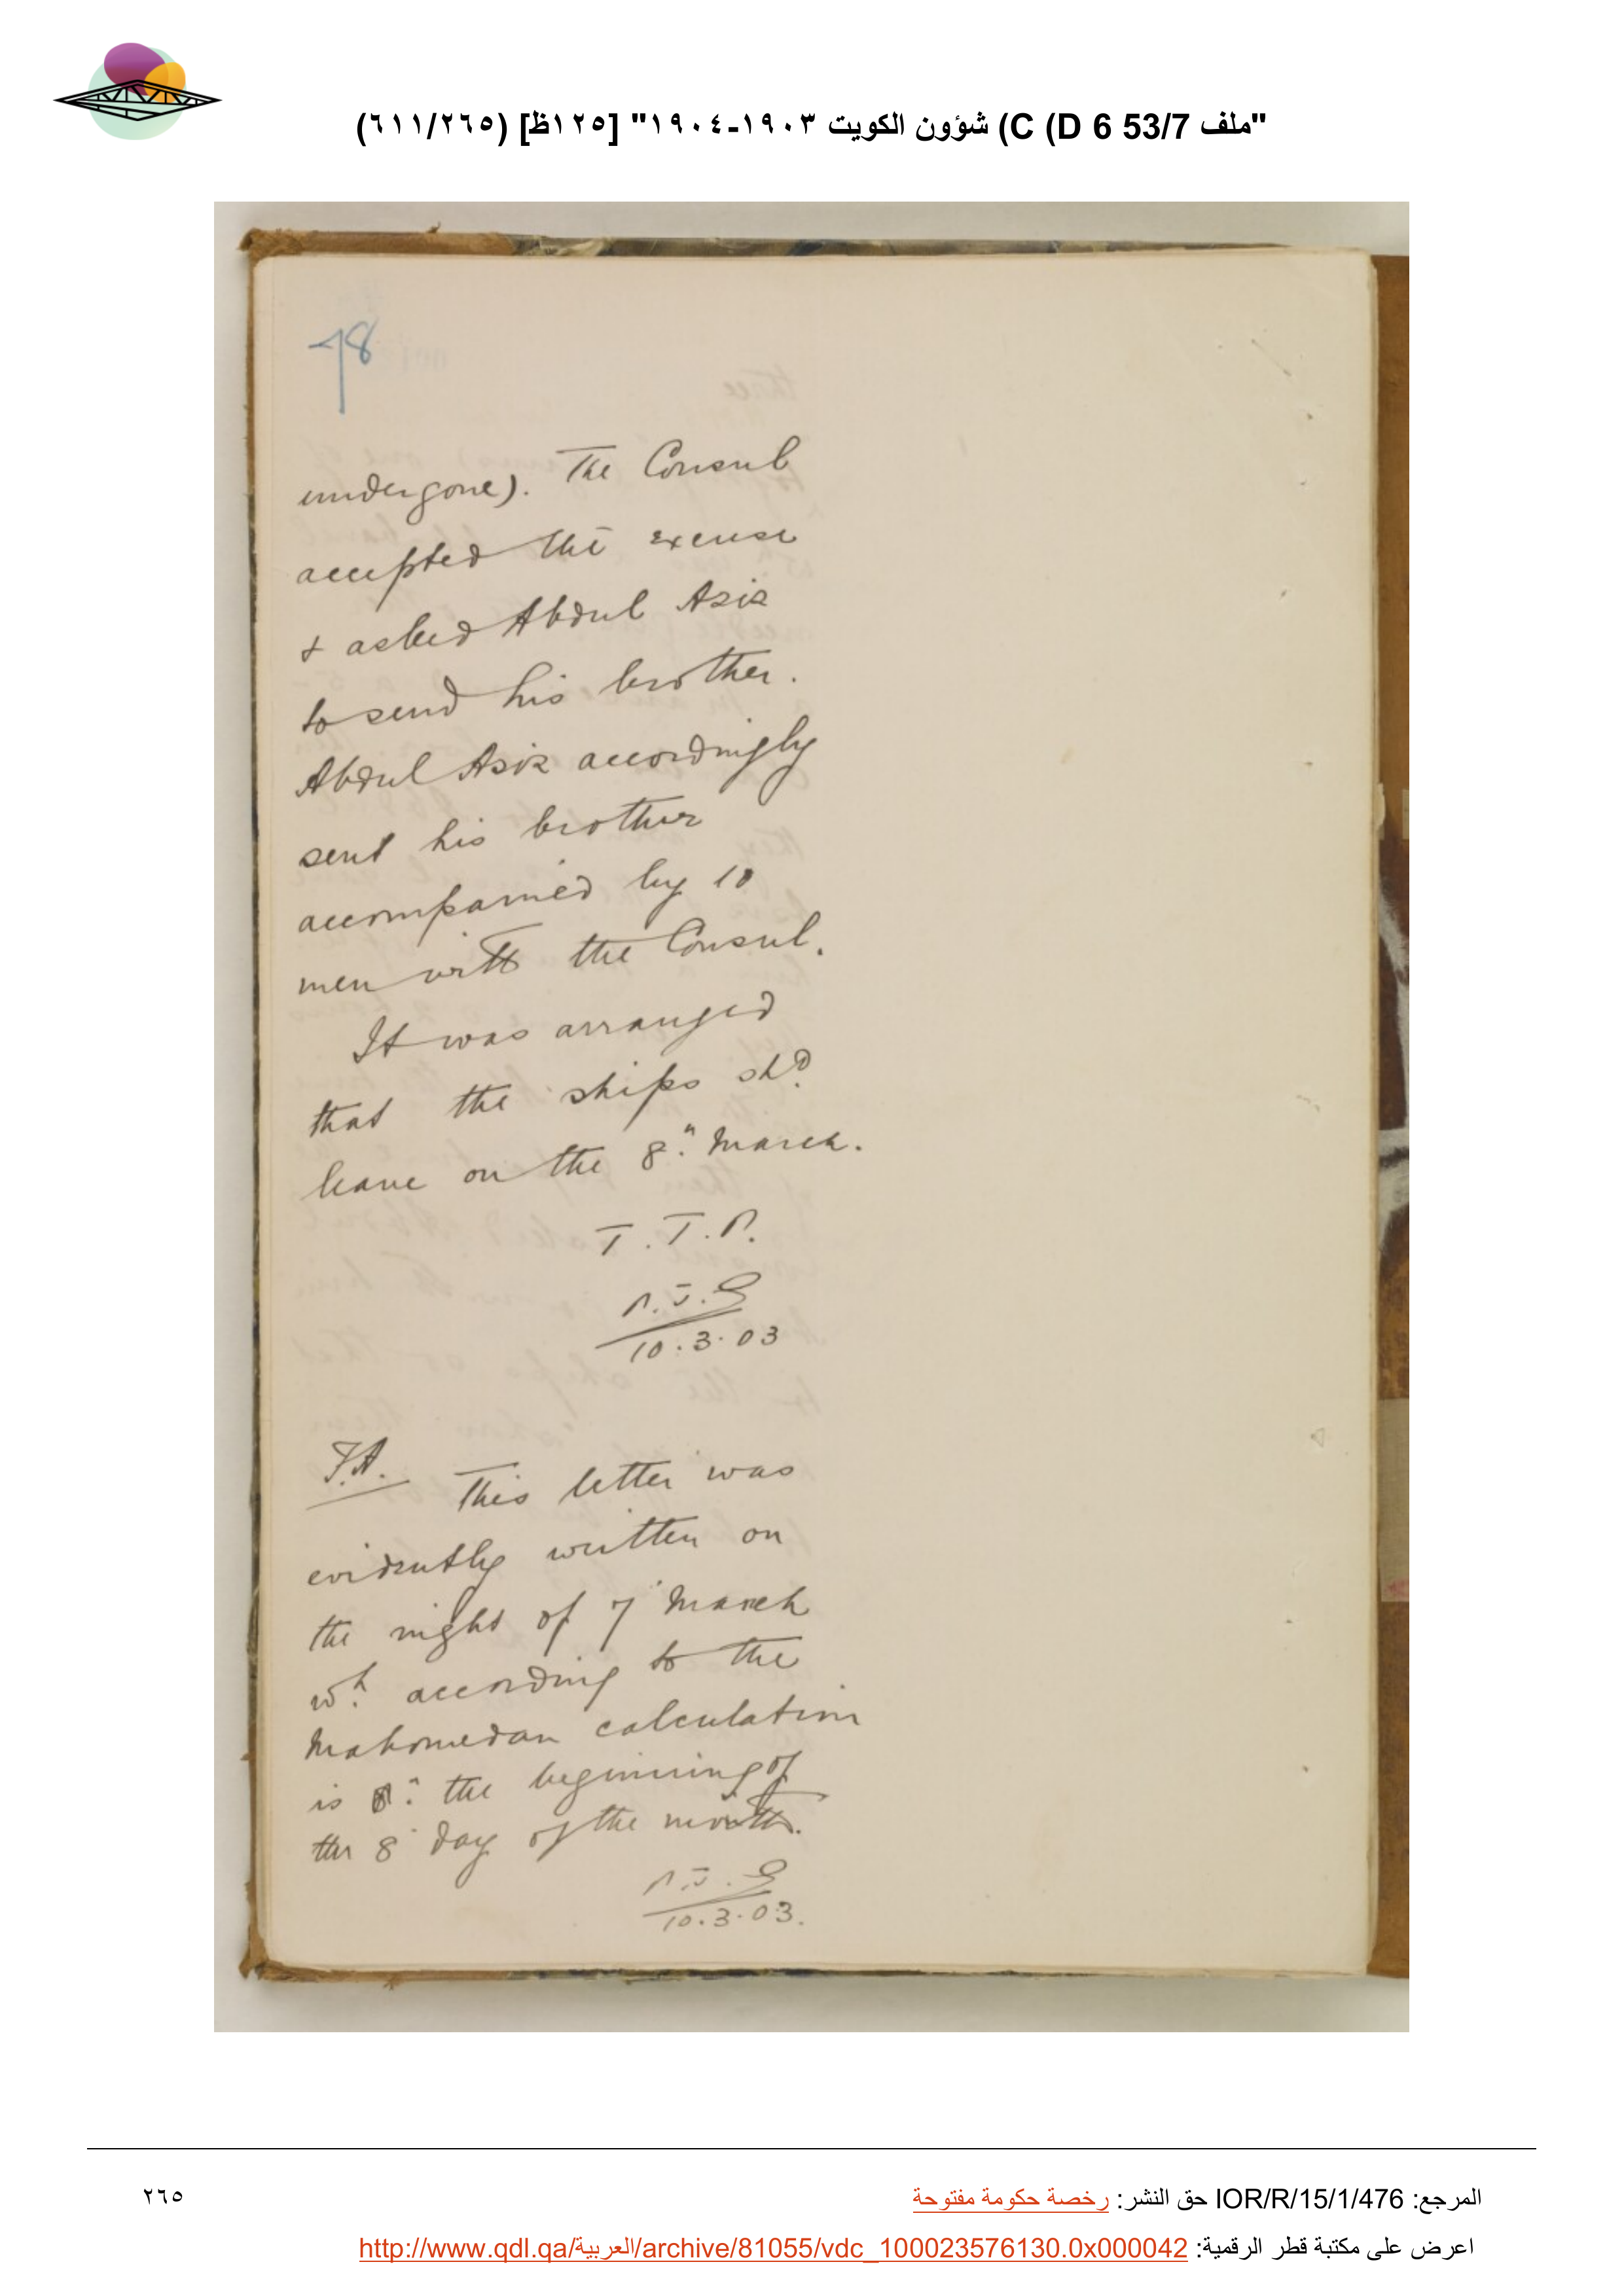 "ملف 53/7 D 6) C) شؤون الكويت ١٩٠٣-١٩٠٤" [١٢٥ظ] (٦١١/٢٦٥)
78
undergone). The Consul
accepted the excuse
& asked Abdul Aziz
to send his brother.
Abdul Aziz accordingly
sent his brother
accompanied by 10
men with the Consul.
It was arranged
that the ships shd.
leave on the 8". March.
T. T. P.
10.3.03
F.A. This letter was
evidently written on
the night of 7 March
wh. according to the
Mahomedan calculation
is the beginning of
the 8 day of the month.
10.3.03.
المرجع: IOR/R/15/1/476 حق النشر: رخصة حكومة مفتوحة
٢٦٥
اعرض على مكتبة قطر الرقمية: http://www.qdl.qa/العربية/archive/81055/vdc_100023576130.0x000042